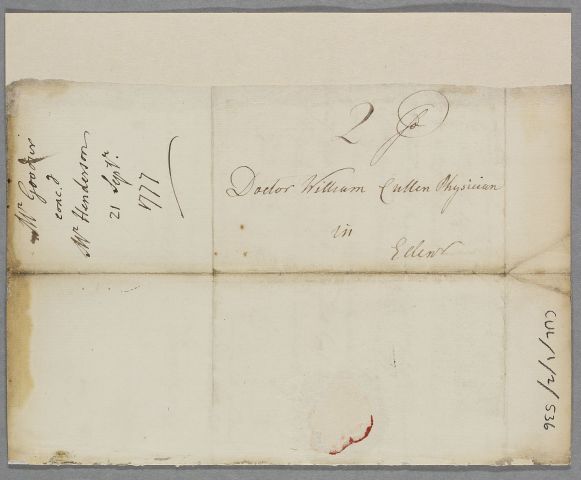 Mr. Goodsir
conc.g
Mr. Henderson
21 Septr.
1777
2 p
Doctor William Cullen Physician
in
Edenr
CUL/1/2/536